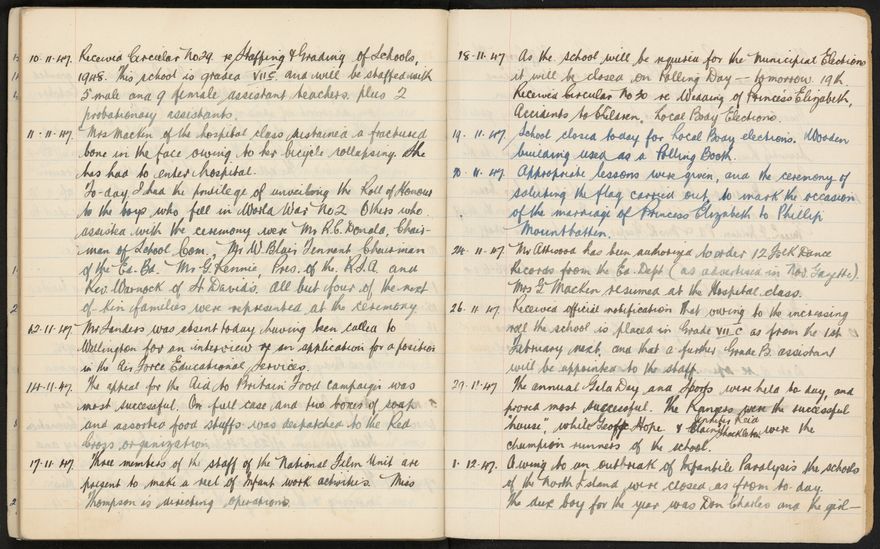 10.11.47. Received Circular No 29 re Staffing & Grading of Schools,
1948. This school is graded VII C and will be staffed with
5 male and 9 female assistant teachers plus 2
probationary assistants.
11.11.47. Mrs Macken of the hospital class sustained a fractured
bone in the face owing to her bicycle collapsing. She
has had to enter hospital.
To-day I had the privilege of unveiling the Roll of Honour
to the boys who fell in World War No 2. Others who
assisted with the ceremony were Mr R.E. Donald, Chair-
man of School Com, Mr W. Blair Tennent Chairman
of the Ed. Bd. Mr G. Rennie, Pres. of the R.S.A. and
Rev. Warnock of St Davids. All but four of the next
of-kin families were represented at the ceremony.
12.11.47. Mr Sanders was absent today having been called to
Wellington for an interview re an application for a position
in the Air Force Educational Services.
14.11.47. The appeal for the Aid to Britain Food campaign was
most successful. On full case and two boxes of soap
and assorted food stuffs was despatched to the Red
Cross organization.
17.11.47. Three members of the staff of the National Film Unit are
present to make a reel of Infant work activities. Miss
Thompson is directing operations.
18.11.47 As the school will be required for the Municipal Elections
it will be closed on Polling Day — tomorrow 19th.
Received Circular No 30 re Wedding of Princess Elizabeth,
Accidents to Children, Local Body Elections.
19.11.47. School closed today for Local Body elections. Wooden
building used as a Polling Booth.
20.11.47. Appropriate lessons were given, and the ceremony of
saluting the flag carried out, to mark the occasion
of the marriage of Princess Elizabeth to Phillip
Mountbatten.
24.11.47 Mr Attwood has been authorized to order 12 Folk Dance
Records from the Ed. Dept (as advertised in Nov. Gazette).
Mrs G Macken resumed at the Hospital class.
26.11.47. Received official notification that owing to the increasing
roll the school is placed in Grade VII C as from the 1st
February next, and that a further Grade B assistant
will be appointed to the staff.
27.11.47 The annual Gala Day and Sports were held to day, and
proved most successful. The Rangers were the successful
"house", while Geoff Hope & Jennifer Reid
Shackleton were the
champion runners of the school.
1.12.47. Owing to an outbreak of Infantile Paralysis the schools
of the North Island were closed as from to-day.
The dux boy for the year was Don Charles and the girl—